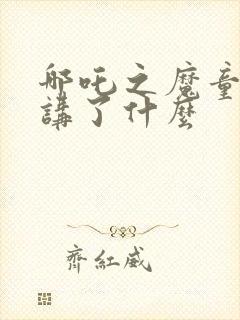 哪吒之魔童
講了什麼
齊紅威